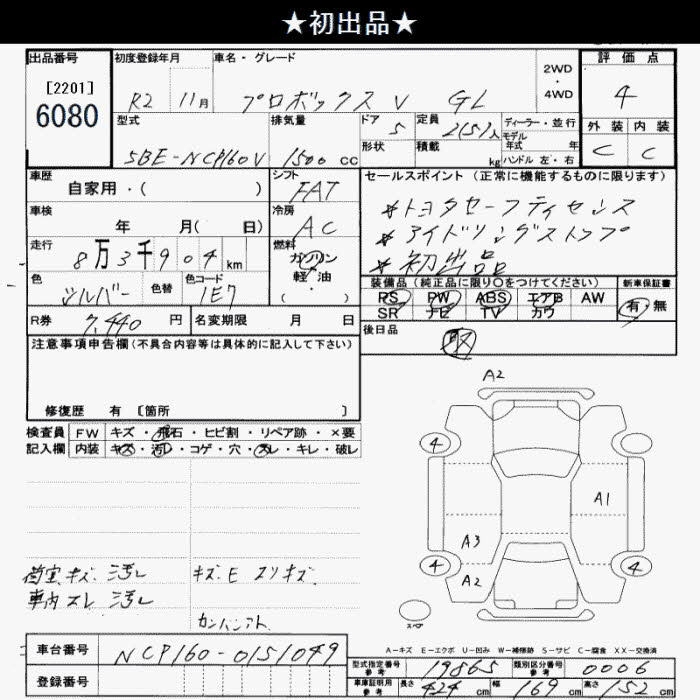 ★初出品★
出品番号 初度登録年月 車名・グレード 2WD ・ 4WD 評価点
[2201]
6080
R2 11月 プロボックス V GL 4
型式 排気量 ドア 定員 ディーラー・並行 外装 内装
5 2(5)人 モデル年式 年
5BE-NCP160V 1500 cc 形状 積載 kg ハンドル 左・右 C C
車歴 シフト セールスポイント (正常に機能するものに限ります)
自家用・( ) FAT
＊トヨタセーフティセンス
車検 冷房
年 月( 日) AC
＊アイドリングストップ
走行 燃料
8万3千904km ガソリン
＊初出品
色 色替 色コード 軽油
シルバー 1E7 ・( )
装備品 (純正品に限り○をつけてください) 新車保証書
PS PW ABS エアB AW 有・無
SR ナビ TV カワ
R券 7,440 円 名変期限 月 日
後日品
取
注意事項申告欄 (不具合内容等は具体的に記入して下さい)
修復歴 有 [箇所 ]
検査員 FW キズ・飛石・ヒビ割・リペア跡・×要
記入欄 内装 キズ・汚レ・コゲ・穴・スレ・キレ・破レ
A2
4
A1
A3
4 A2 4
荷室キズ.汚レ キズ.E スリキズ.
車内スレ 汚レ
カンバンアト
スペア
A-キズ E-エクボ U-凹み W-補修跡 S-サビ C-腐食 XX-交換済
車台番号 NCP160-0151049
登録番号
型式指定番号 参考 19865 類別区分番号 参考 0006
車庫証明用 参考 長さ 424 cm 幅 169 cm 高さ 152 cm